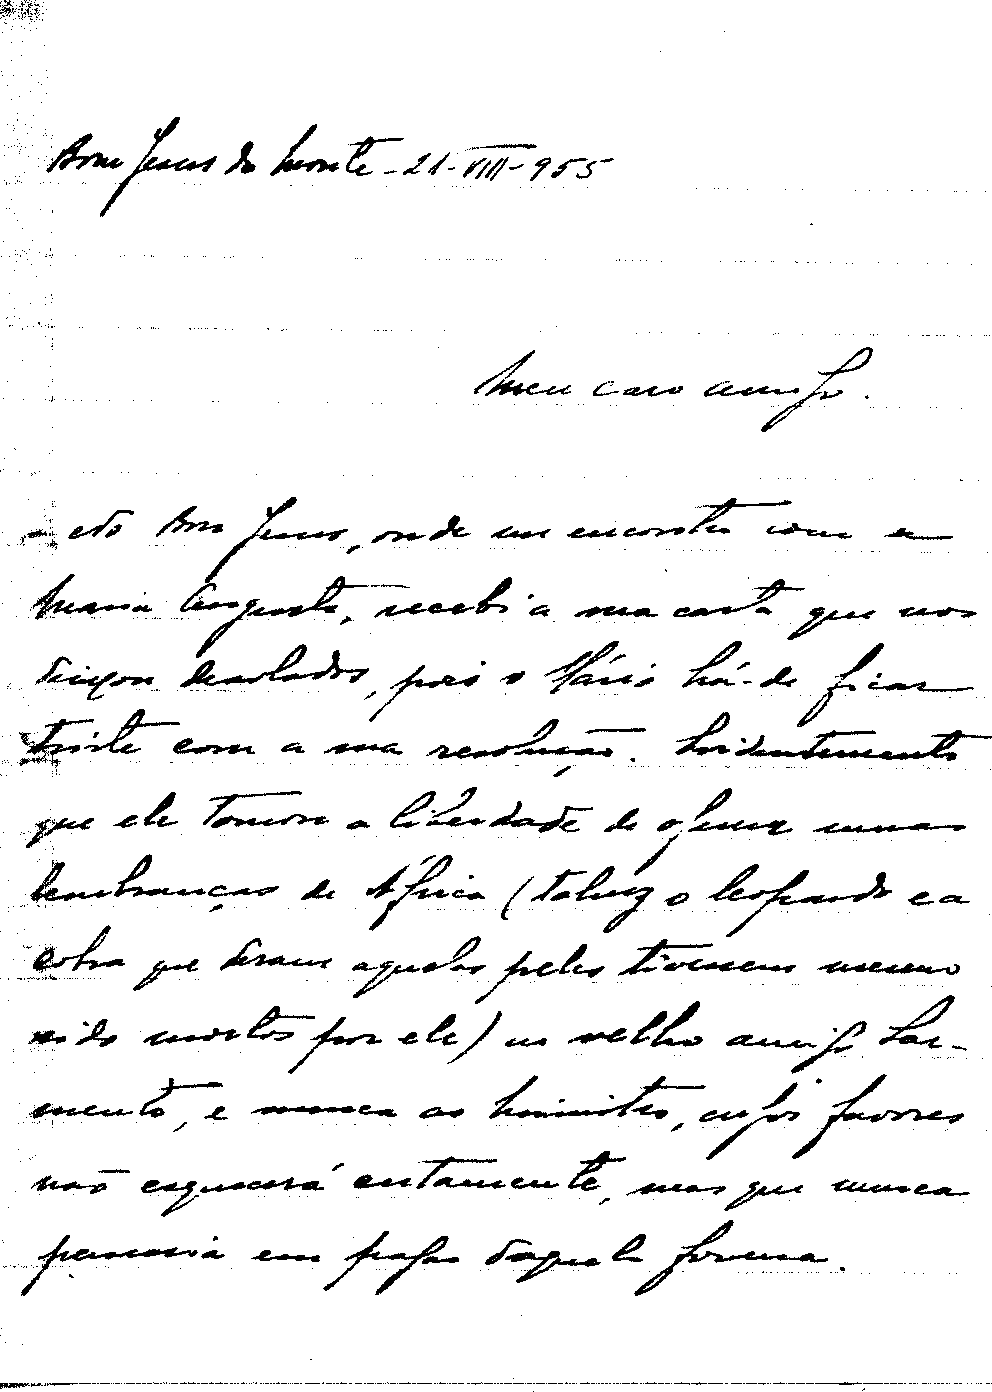 Bom Jesus do Monte - 21-VIII-955
Meu caro amigo.
neste Bom Jesus, onde me encontro com a
Maria Augusta, recebi a sua carta que nos
deixou desolados, pois o Mário há-de ficar
triste com a sua resolução. Evidentemente
que ele tomou a liberdade de oferecer umas
lembranças de África (talvez o leopardo e a
cobra que deram aquelas peles tivessem mesmo
sido mortos por ele) ao velho amigo Sar-
mento, e nunca ao Ministro, cujos favores
não esquecerá certamente, mas que nunca
pensaria em pagar daquela forma.